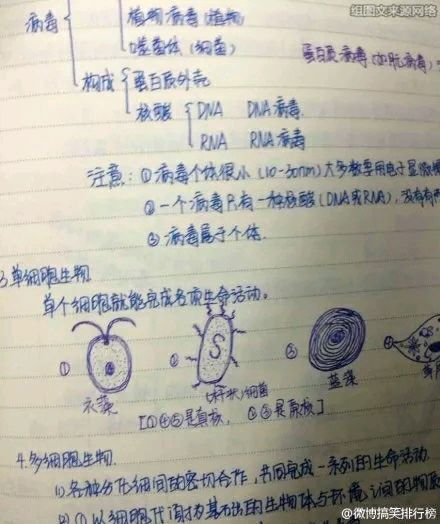 组图文来源网络
病毒
植物病毒(植物)
噬菌体(细菌)
蛋白质病毒(如朊病毒)
构成
蛋白质外壳
核酸
DNA DNA病毒
RNA RNA病毒
注意:①病毒个体很小(10-30nm)大多数要用电子显微
②一个病毒只有一种核酸(DNA或RNA),没有
③病毒属于个体.
3.单细胞生物
单个细胞就能完成各项生命活动。
① ② S ③ ④
衣藻 (杆状)细菌 蓝藻
[①④⑤是真核, ②③是原核]
4.多细胞生物.
(1)各种分化细胞的密切合作,共同完成一系列的生命活动.
(2)①以细胞代谢为基础的生物体与环境之间的物质
@微博搞笑排行榜